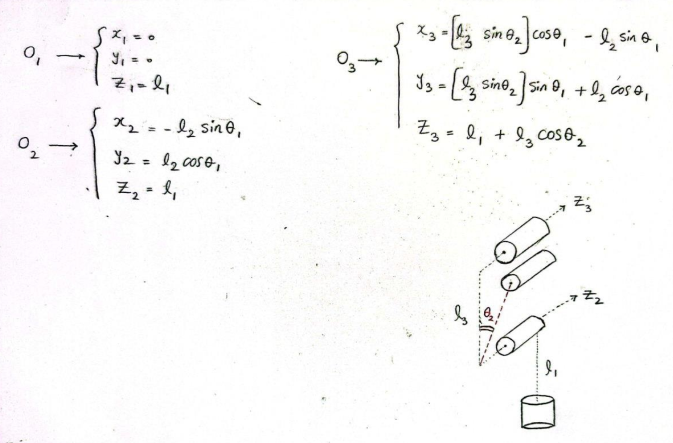 O₁ → { x₁ = 0
y₁ = 0
z₁ = l₁
O₂ → { x₂ = - l₂ sin θ₁
y₂ = l₂ cos θ₁
z₂ = l₁
O₃ → { x₃ = [l₃ sin θ₂] cos θ₁ - l₂ sin θ₁
y₃ = [l₃ sin θ₂] sin θ₁ + l₂ cos θ₁
z₃ = l₁ + l₃ cos θ₂
z₃
l₃ θ₂
z₂
l₁